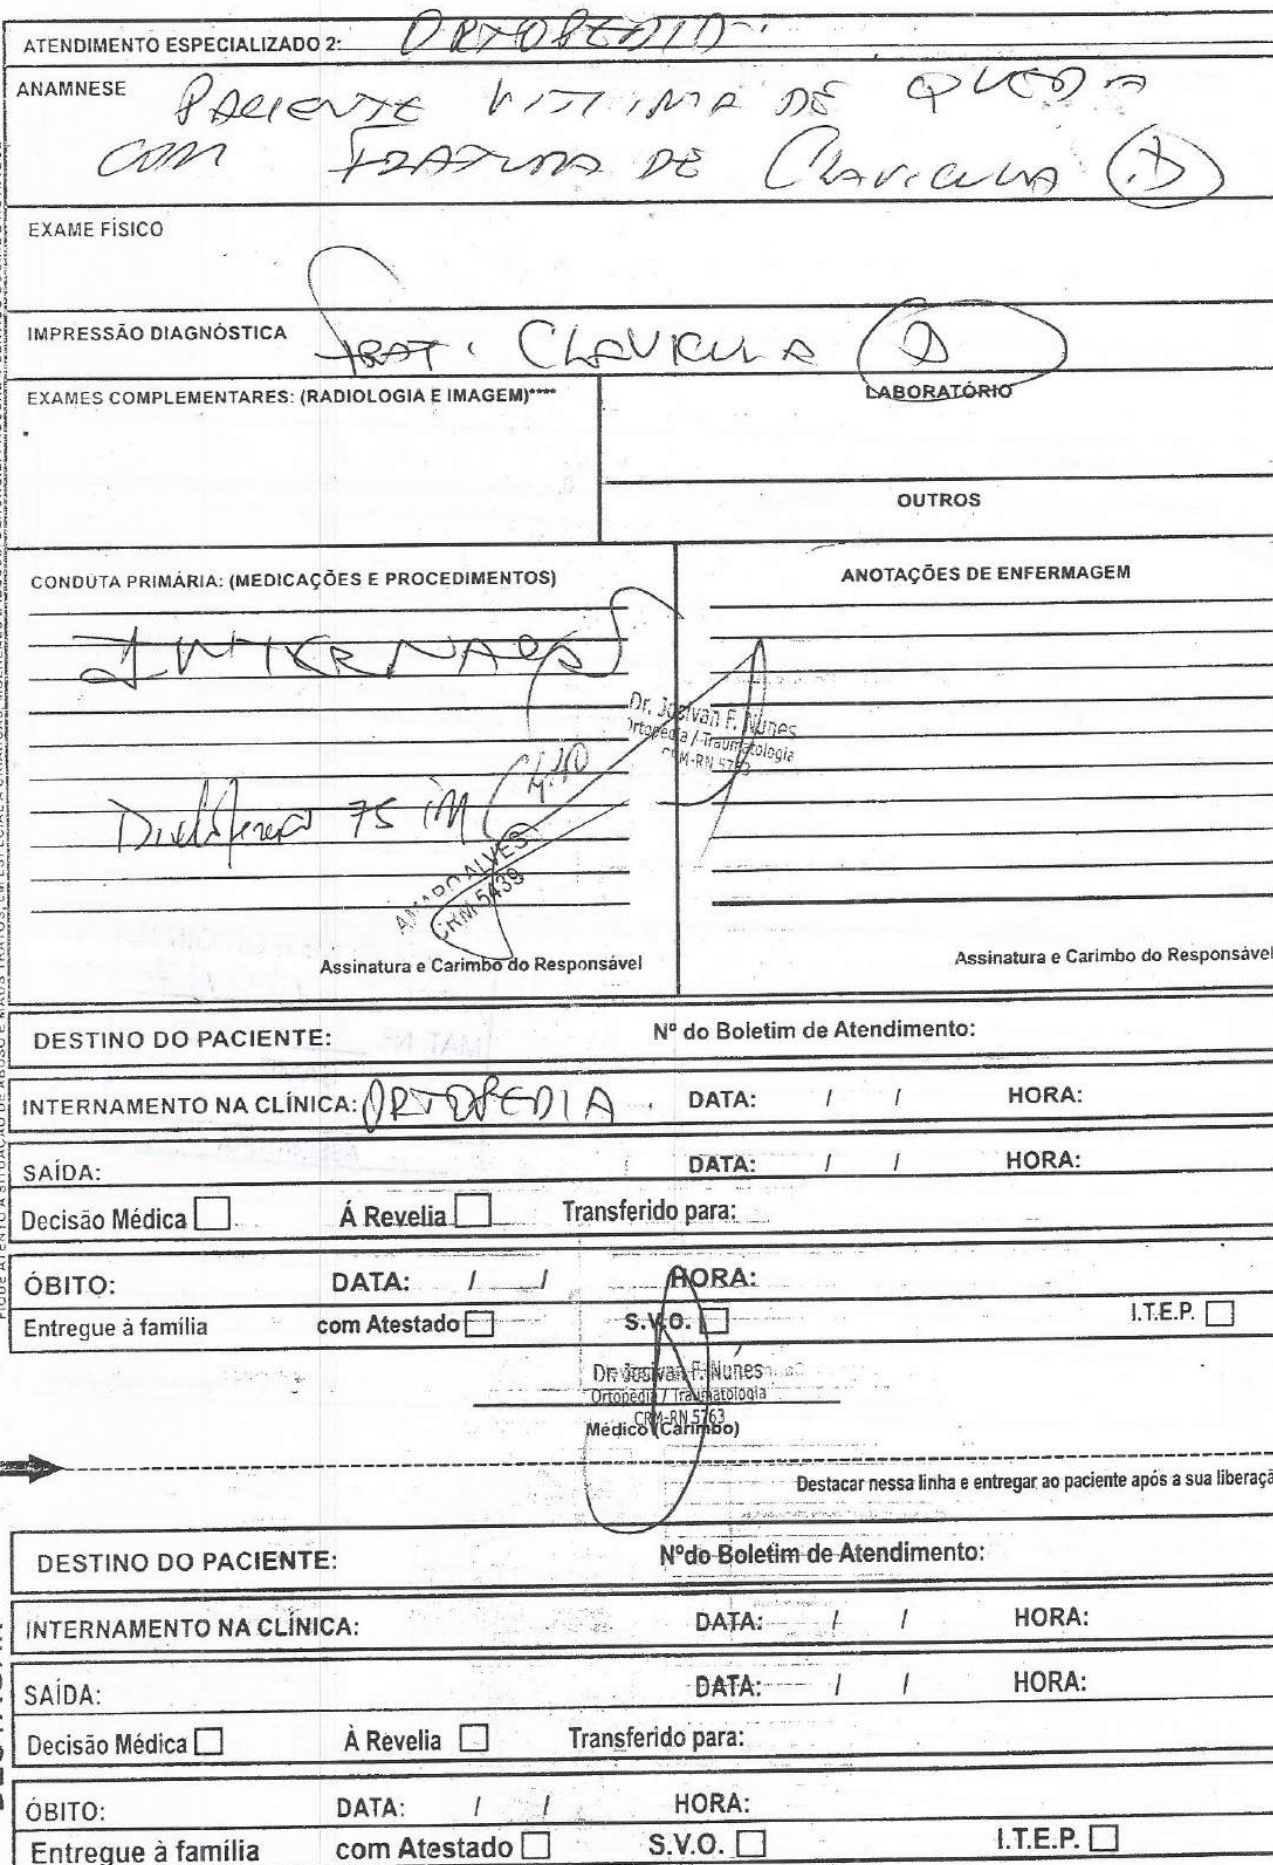 ATENDIMENTO ESPECIALIZADO 2: ORTOPEDIA.
ANAMNESE
PACIENTE VITIMA DE QUEDA
COM FRATURA DE CLAVICULA (D)
EXAME FÍSICO
IMPRESSÃO DIAGNÓSTICA
FRAT. CLAVICULA (D)
EXAMES COMPLEMENTARES: (RADIOLOGIA E IMAGEM)****
LABORATÓRIO
OUTROS
CONDUTA PRIMÁRIA: (MEDICAÇÕES E PROCEDIMENTOS)
ANOTAÇÕES DE ENFERMAGEM
Dr. Josivan F. Nunes
Ortopedia / Traumatologia
CRM-RN 5763
75 IM
AMARO ALVES
CRM 5439
Assinatura e Carimbo do Responsável
Assinatura e Carimbo do Responsável
DESTINO DO PACIENTE: Nº do Boletim de Atendimento:
INTERNAMENTO NA CLÍNICA: ORTOPEDIA. DATA: / / HORA:
SAÍDA: DATA: / / HORA:
Decisão Médica Á Revelia Transferido para:
ÓBITO: DATA: / / HORA:
Entregue à família com Atestado S.V.O. I.T.E.P.
Dr. Josivan F. Nunes
Ortopedia / Traumatologia
CRM-RN 5763
Médico (Carimbo)
Destacar nessa linha e entregar ao paciente após a sua liberaçã
DESTINO DO PACIENTE: Nºdo Boletim de Atendimento:
INTERNAMENTO NA CLÍNICA: DATA: / / HORA:
SAÍDA: DATA: / / HORA:
Decisão Médica À Revelia Transferido para:
ÓBITO: DATA: / / HORA:
Entregue à família com Atestado S.V.O. I.T.E.P.